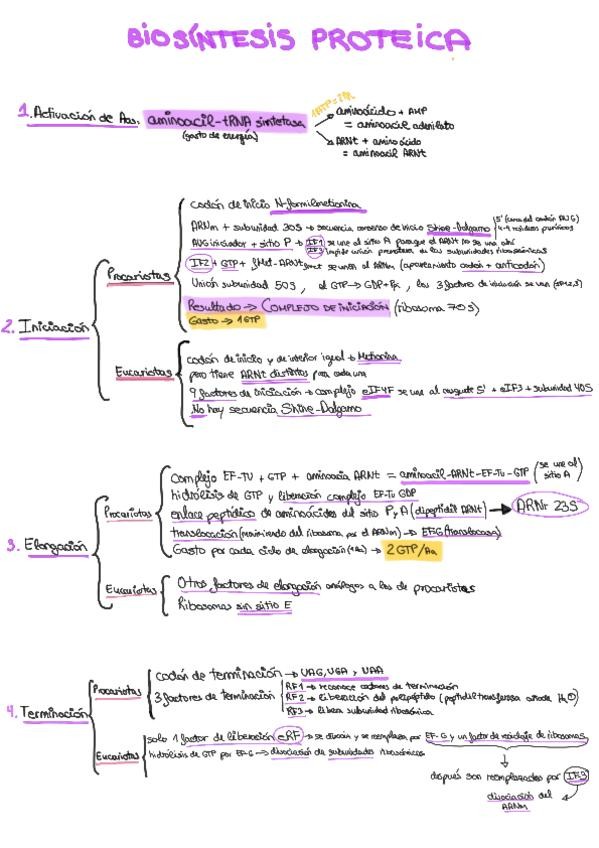 BIOSÍNTESIS PROTEICA
1. Activación de Aas: aminoacil-tRNA sintetasa
(gasto de energía)
aminoácido + AMP
= aminoacil adenilato
ARNt + aminoácido
= aminoacil ARNt
2. Iniciación
Procariotas
codón de inicio N-formilmetionina
ARNm + subunidad 30S → secuencia consenso de inicio Shine-Dalgarno
AUG iniciador + sitio P → IF1 se une al sitio A para que el ARNt no se una ahí
IF3 impide unión prematura de las subunidades ribosómicas
IF2 + GTP + fMet-ARNt se unen al ARNm (apareamiento codón + anticodón)
Unión subunidad 50S, el GTP → GDP+Pi, los 3 factores de iniciación se van
Resultado → COMPLEJO DE INICIACIÓN (ribosoma 70S)
Gasto → 1GTP
Eucariotas
codón de inicio y de interior igual → Metionina
pero tiene ARNt distintos para cada una
9 factores de iniciación → complejo eIF4F se une al casquete 5' + eIF3 + subunidad 40S
No hay secuencia Shine-Dalgarno
3. Elongación
Procariotas
complejo EF-TU + GTP + ARNt = aminoacil-ARNt-EF-Tu-GTP (se une al sitio A)
hidrólisis de GTP y liberación complejo EF-Tu GDP
enlace peptídico de aminoácidos del sitio P y A (dipeptidil ARNt) → ARNr 23S
translocación (movimiento del ribosoma por el ARNm) → EF-G (translocasa)
Gasto por cada ciclo de elongación → 2 GTP/Aa
Eucariotas
Otros factores de elongación análogos a los de procariotas
Ribosomas sin sitio E
4. Terminación
Procariotas
codón de terminación → UAG, UGA y UAA
3 factores de terminación
RF1 → reconoce codones de terminación
RF2 → liberación del polipéptido (peptidil transferasa añade H2O)
RF3 → libera subunidad ribosómica
Eucariotas
solo 1 factor de liberación eRF → se disocia y se reemplaza por EF-G y un factor de reciclaje de ribosomas
hidrólisis de GTP por EF-G → disociación de subunidades ribosómicas
después son reemplazados por IF3
disociación del
ARNm